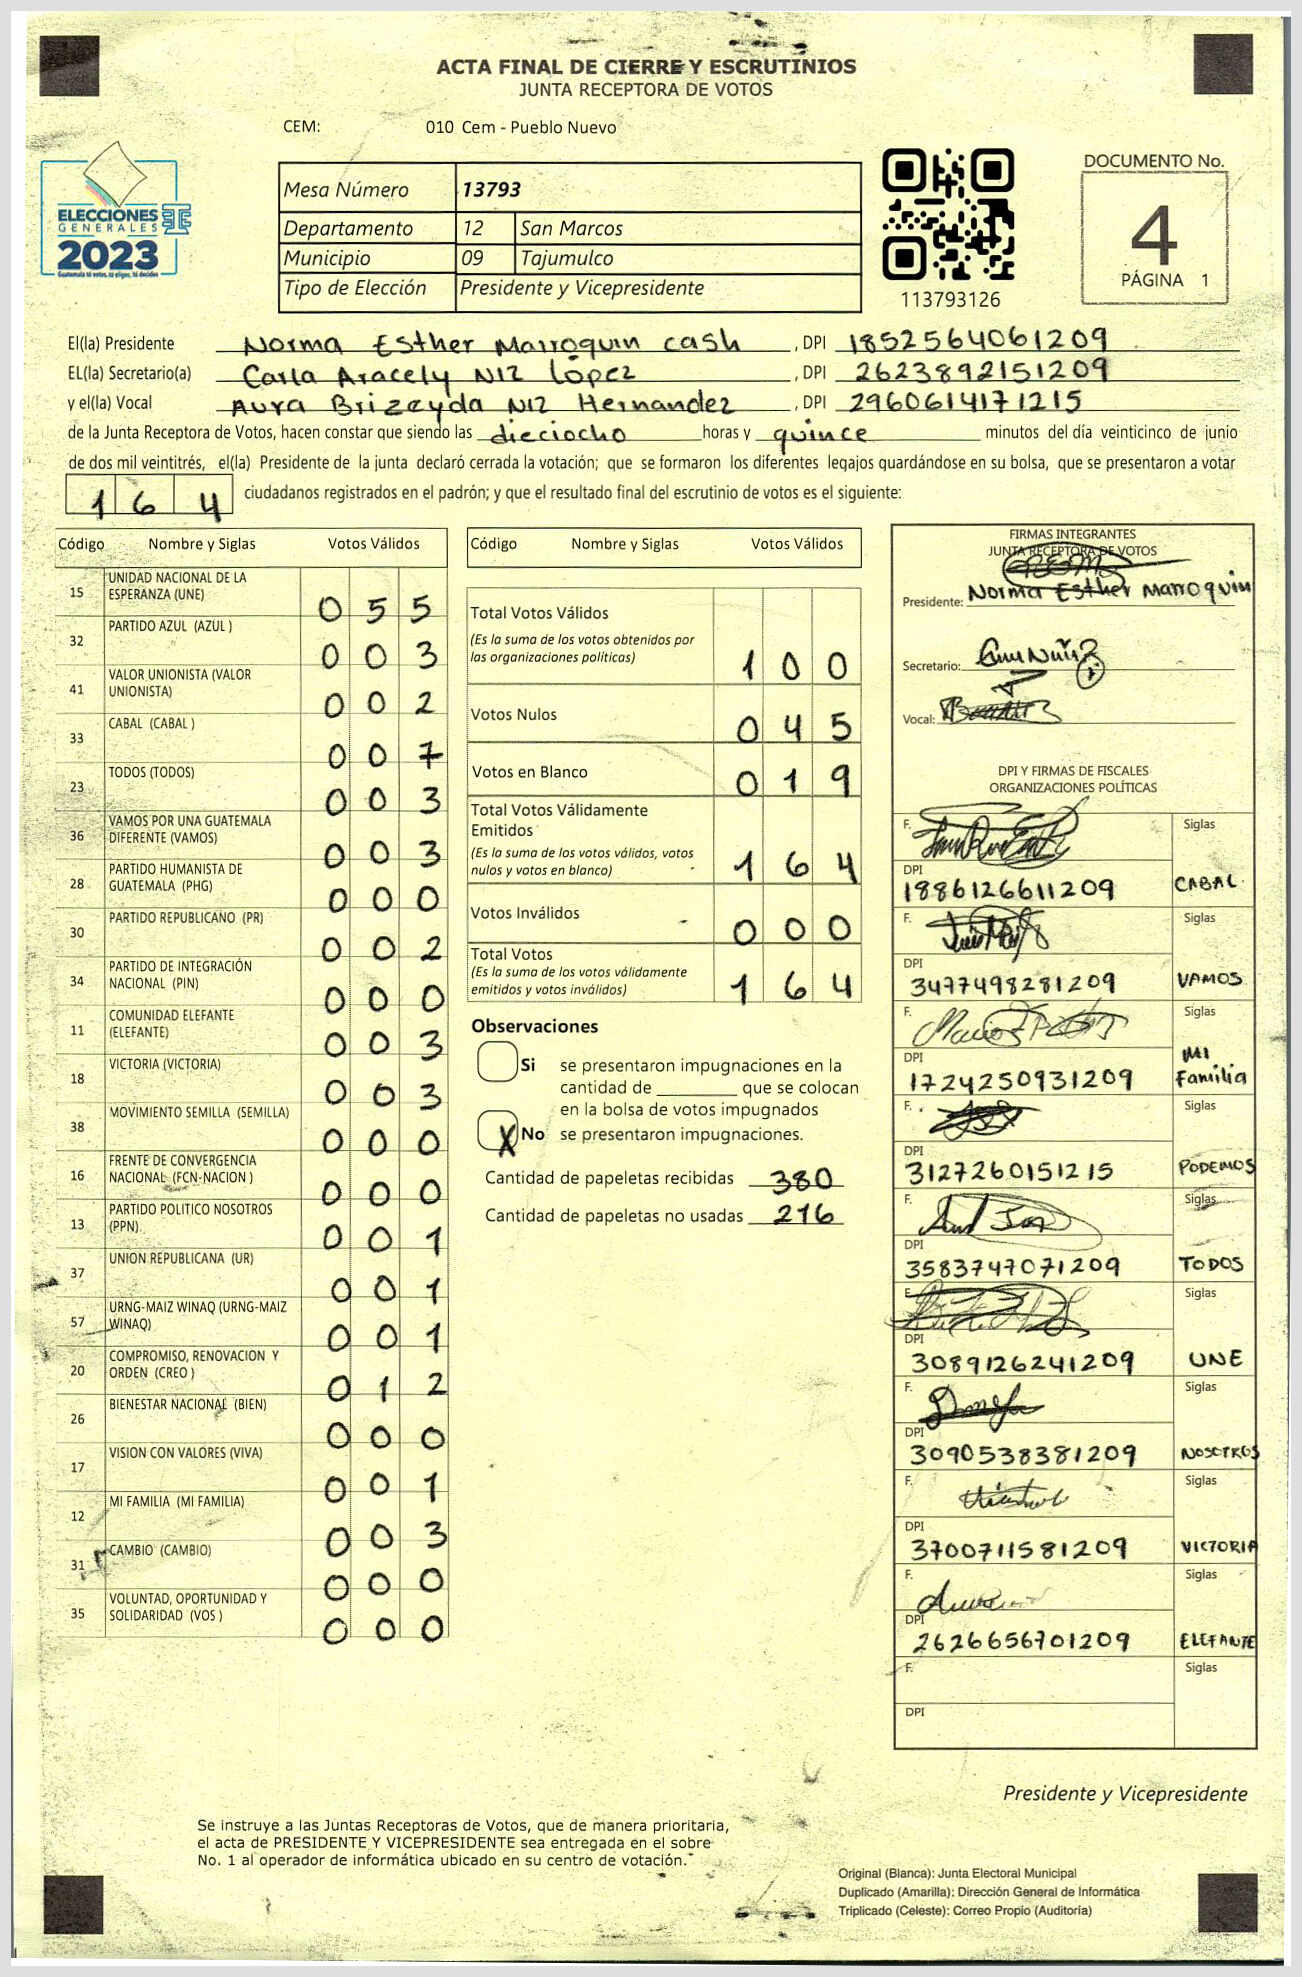 ACTA FINAL DE CIERRE Y ESCRUTINIOS
JUNTA RECEPTORA DE VOTOS
CEM: 010 Cem - Pueblo Nuevo
ELECCIONES
GENERALES
2023
Guatemala tú votas, tú eliges, tú decides
Mesa Número 13793
Departamento 12 San Marcos
Municipio 09 Tajumulco
Tipo de Elección Presidente y Vicepresidente
113793126
DOCUMENTO No.
4
PÁGINA 1
El(la) Presidente Norma Esther Marroquin cash , DPI 1852564061209
EL(la) Secretario(a) Carla Aracely Niz López , DPI 2623892151209
y el(la) Vocal Aura Brizeyda Niz Hernandez , DPI 2960614171215
de la Junta Receptora de Votos, hacen constar que siendo las dieciocho horas y quince minutos del día veinticinco de junio
de dos mil veintitrés, el(la) Presidente de la junta declaró cerrada la votación; que se formaron los diferentes legajos guardándose en su bolsa, que se presentaron a votar
164 ciudadanos registrados en el padrón; y que el resultado final del escrutinio de votos es el siguiente:
Código Nombre y Siglas Votos Válidos
15 UNIDAD NACIONAL DE LA ESPERANZA (UNE) 055
32 PARTIDO AZUL (AZUL ) 003
41 VALOR UNIONISTA (VALOR UNIONISTA) 002
33 CABAL (CABAL ) 007
23 TODOS (TODOS) 003
36 VAMOS POR UNA GUATEMALA DIFERENTE (VAMOS) 003
28 PARTIDO HUMANISTA DE GUATEMALA (PHG) 000
30 PARTIDO REPUBLICANO (PR) 002
34 PARTIDO DE INTEGRACIÓN NACIONAL (PIN) 000
11 COMUNIDAD ELEFANTE (ELEFANTE) 003
18 VICTORIA (VICTORIA) 003
38 MOVIMIENTO SEMILLA (SEMILLA) 000
16 FRENTE DE CONVERGENCIA NACIONAL (FCN-NACION ) 000
13 PARTIDO POLITICO NOSOTROS (PPN) 001
37 UNION REPUBLICANA (UR) 001
57 URNG-MAIZ WINAQ (URNG-MAIZ WINAQ) 001
20 COMPROMISO, RENOVACION Y ORDEN (CREO ) 012
26 BIENESTAR NACIONAL (BIEN) 000
17 VISION CON VALORES (VIVA) 001
12 MI FAMILIA (MI FAMILIA) 003
31 CAMBIO (CAMBIO) 000
35 VOLUNTAD, OPORTUNIDAD Y SOLIDARIDAD (VOS ) 000
Código Nombre y Siglas Votos Válidos
Total Votos Válidos
(Es la suma de los votos obtenidos por
las organizaciones políticas) 100
Votos Nulos 045
Votos en Blanco 019
Total Votos Válidamente
Emitidos
(Es la suma de los votos válidos, votos
nulos y votos en blanco) 164
Votos Inválidos 000
Total Votos
(Es la suma de los votos válidamente
emitidos y votos inválidos) 164
Observaciones
Si se presentaron impugnaciones en la
cantidad de ________ que se colocan
en la bolsa de votos impugnados
X No se presentaron impugnaciones.
Cantidad de papeletas recibidas 380
Cantidad de papeletas no usadas 216
FIRMAS INTEGRANTES
JUNTA RECEPTORA DE VOTOS
Presidente: Norma Esther Marroquin
Secretario:
Vocal:
DPI Y FIRMAS DE FISCALES
ORGANIZACIONES POLÍTICAS
F. Siglas
DPI 1886126611209 CABAL
F. Siglas
DPI 3477498281209 VAMOS
F. Siglas
DPI 1724250931209 Mi Familia
F. Siglas
DPI 3127260151215 PODEMOS
F. Siglas
DPI 3583747071209 TODOS
F. Siglas
DPI 3089126241209 UNE
F. Siglas
DPI 3090538381209 NOSOTROS
F. Siglas
DPI 3700711581209 VICTORIA
F. Siglas
DPI 2626656701209 ELEFANTE
F. Siglas
DPI
Presidente y Vicepresidente
Se instruye a las Juntas Receptoras de Votos, que de manera prioritaria,
el acta de PRESIDENTE Y VICEPRESIDENTE sea entregada en el sobre
No. 1 al operador de informática ubicado en su centro de votación.
Original (Blanca): Junta Electoral Municipal
Duplicado (Amarilla): Dirección General de Informática
Triplicado (Celeste): Correo Propio (Auditoría)